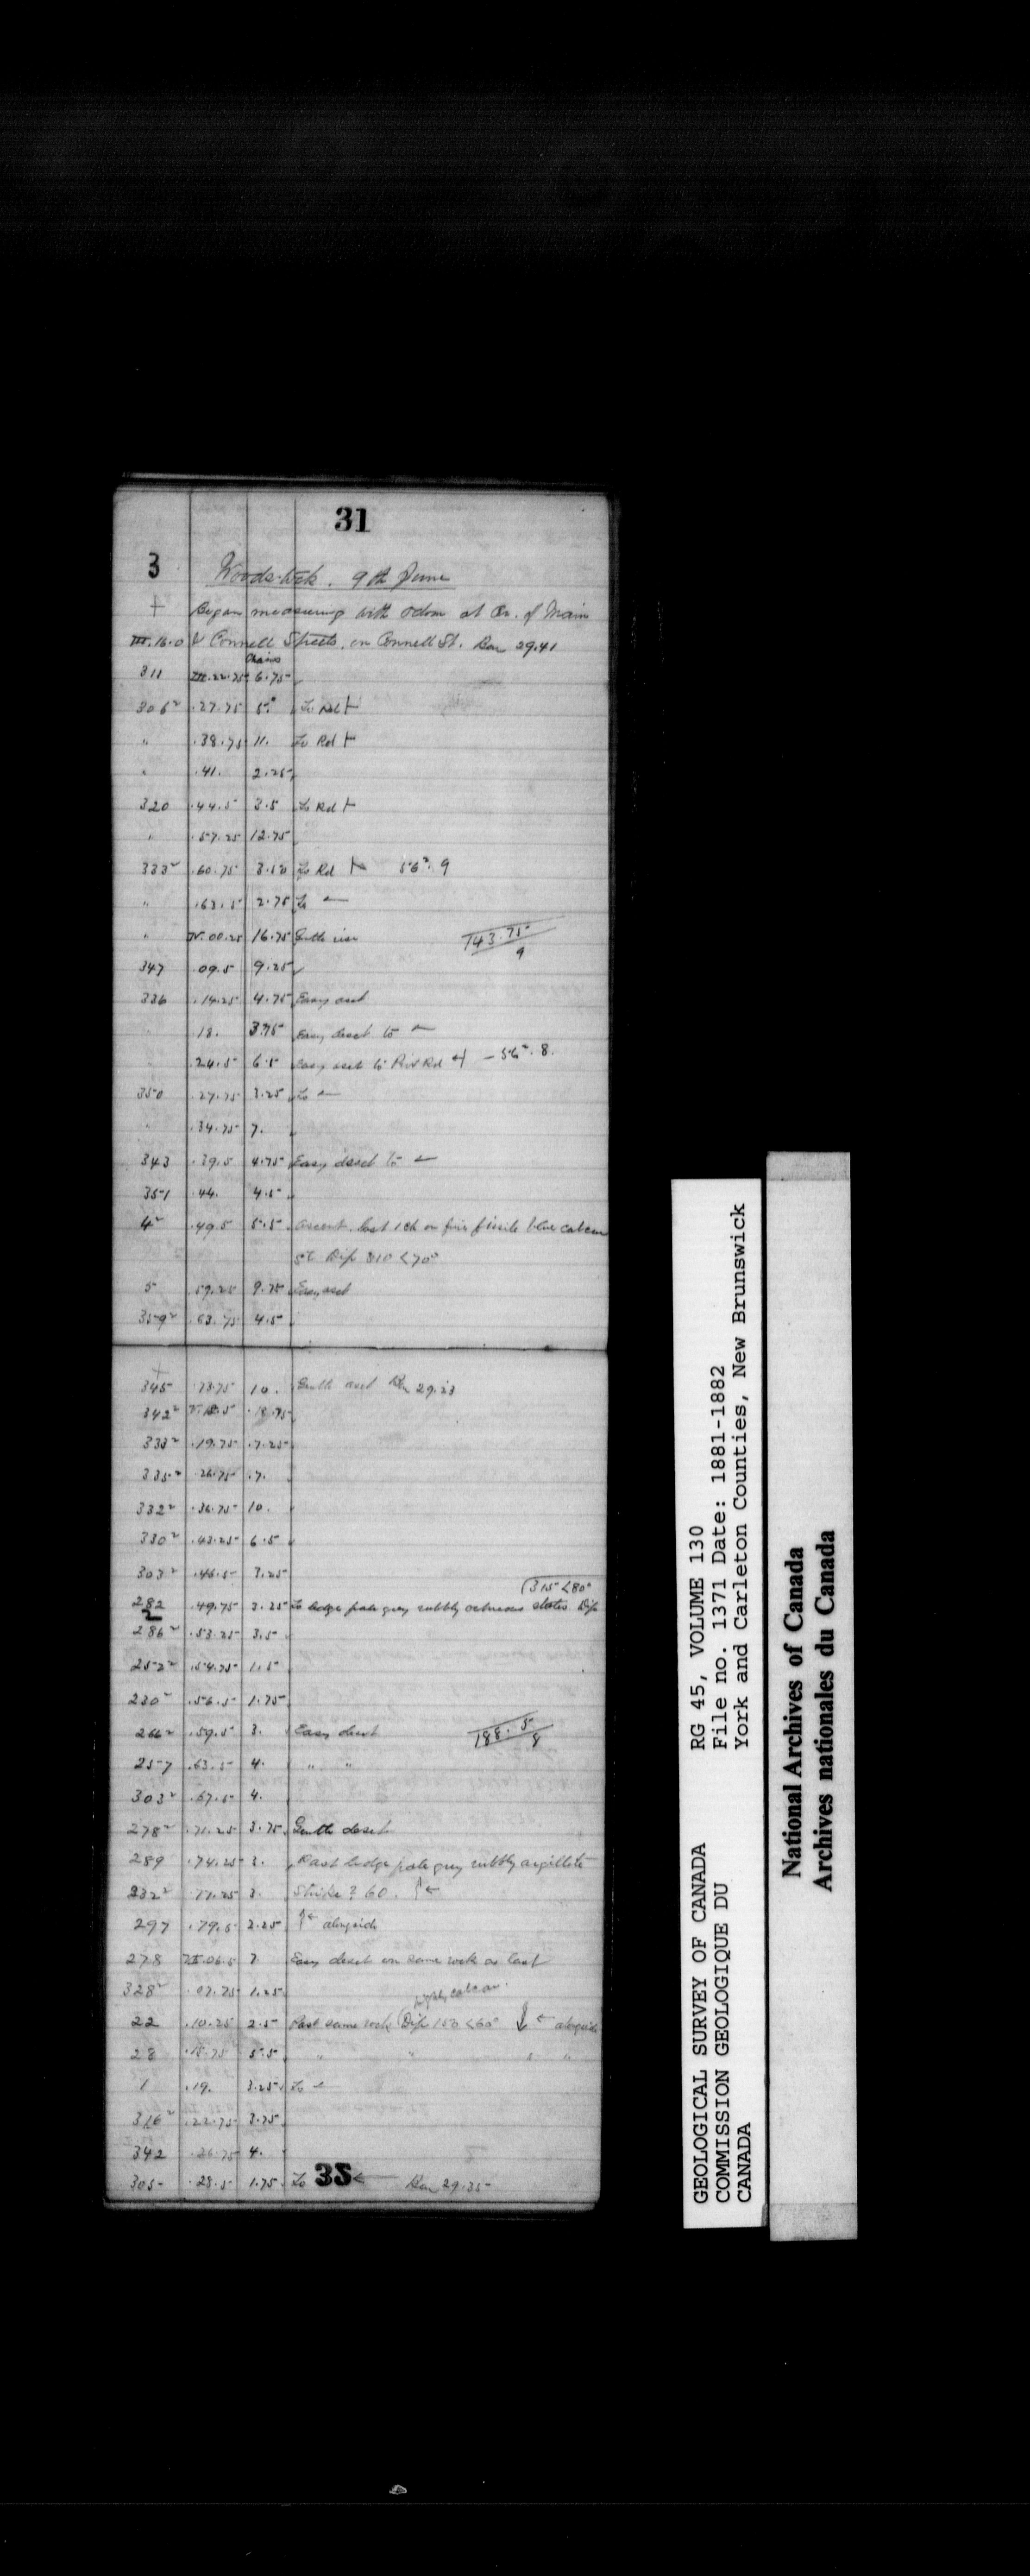 31
3 Woodstock. 9th June
+ Began measuring with odom at Cr. of Main
III.16.0 & Connell Streets, on Connell St. Bar 29.41
Chains
311 III.22.75 6.75
306½ .27.75 5. To Rd ⊢
" .38.75 11. To Rd ⊢
" .41. 2.25
320 .44.5 3.5 To Rd ⊢
" .57.25 12.75
333½ .60.75 3.50 To Rd 56½.9
" .63.5 2.75 To ←
" IV.00.25 16.75 Gentle rise 143.75
9
347 .09.5 9.25
336 .14.25 4.75 Easy asct
.18. 3.75 Easy desct to ←
.24.5 6.5 Easy asct to Rd – 56½.8.
350 .27.75 3.25 To ←
" .34.75 7.
343 .39.5 4.75 Easy desct to ←
351 .44. 4.5
4½ .49.5 5.5 Ascent. Last 1 ch on fine fissile blue calcar
st. Dip 310 <70°
5 .59.25 9.75 Easy asct
359½ .63.75 4.5
+
345 .73.75 10. Gentle asct Bar 29.23
342½ 18.75
333½ .19.75 .7.25
335½ .26.75 .7.
332½ .36.75 10.
330½ .43.25 6.5
303½ .46.5 3.25
315 <80°
282 .49.75 3.25 To ledge pale grey rubbly slates. Dip
286½ .53.25 3.5
252½ .54.75 1.5
230½ .56.5 1.75
266½ .59.5 3. Easy desct 188.5
8
257 .63.5 4. " "
303½ .67.5 4.
278½ .71.25 3.75 Gentle desct
289 .74.25 3. Past ledge pale grey rubbly argillite
232½ .77.25 3. Strike ? 60. ↑←
297 .79.5 2.25 ↑← alongside
278 VI.06.5 7. Easy desct on same rock as last
328½ .07.75 1.25
highly calcar.
22 .10.25 2.5 Past same rock (Dip 150 <60° ↓ ← alongside
28 .15.75 5.5 " " " "
1 .19. 3.25 To ←
316½ .22.75 3.75
342 .26.75 4.
305 .28.5 1.75 To ← Bar 29.35
35
GEOLOGICAL SURVEY OF CANADA
COMMISSION GEOLOGIQUE DU
CANADA
RG 45, VOLUME 130
File no. 1371 Date: 1881-1882
York and Carleton Counties, New Brunswick
National Archives of Canada
Archives nationales du Canada